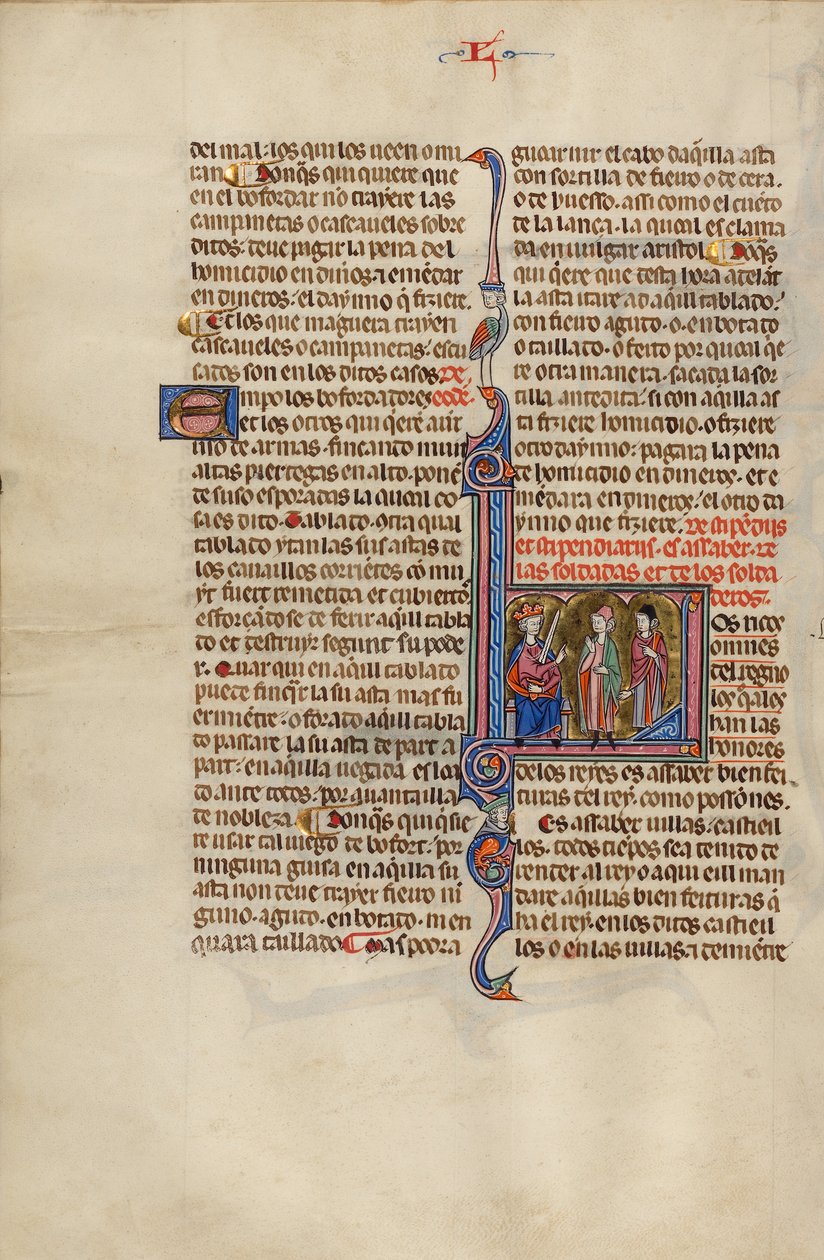 L
del mal. los qui los ueen o mi
ran. Donq̃s qui quiere que
en el bofordar no trayere las
campanetas o cascaueles sobre
ditos. deue pagar la pena del
homicidio en dinõs. ⁊ emẽdar
en dineros. el daynno q̃ fiziere.
Et los que maguera trayen
cascaueles o campanetas. escu
sados son en los ditos casos. De
tẽpo los bofordadores. eodẽ.
Et los otros qui q̃ere aũr
uso de armas. fincando muit
altas piertegas en alto. ponẽ
de suso esporadas la qual co
sa es dito. Tablado. otra qual
tablado ytan las sus astas de
los cauaillos corriẽtes cõ mu
yt fuert remetida et cubiertos
esforçado se de ferir aq̃ll tabla
do et destruyr segunt su pode
r. Quar qui en aq̃ill tablado
puede finq̃r la su asta mas fu
ermẽtre. o forado aq̃ill tabla
do passare la su asta de part a
part. en aq̃illa uegada es loa
do ante todos. por quantailla
de nobleza. Donq̃s qui q̃sie
re usar tal iuego de bofort. por
ninguna guisa en aq̃illa su
asta non deue trayer fierro nĩ
guno. agudo. enbotado. ni en
quara taillado. Mas poora
guoarnir el cabo daq̃illa asta
con sortilla de fierro o de cera.
o de huesso. assi como el cuẽto
de la lança. la qual es clama
da en uulgar aristol. Doq̃s
qui q̃ere que desta hora adelãt
la asta itare ad aq̃ill tablado.
con fierro agudo. o. enbotado
o taillado. o feito por qual q̃e
re otra manera. sacada la sor
tilla antedita. si con aq̃illa as
ta fiziere homicidio. o fiziere
otro daynno. pagara la pena
de homicidio en dineros. et e
mẽdara en dineros. el otro da
ynno que fiziere. De stipẽdijs
et stipendiarijs. es assaber. de
las soldadas et de los solda
deros.
Los ricos
omnes
del regno
los q̃ales
han las
honores
de los reyes es assaber bien fei
turas del rey. como possõnes.
Es assaber uillas. castieil
los. todos tiẽpos sea tenido de
render al rey o a qui eill man
dare aq̃illas bien feituras q̃
ha el rey. en los ditos castieil
los o en las uillas. ⁊ demiẽtre